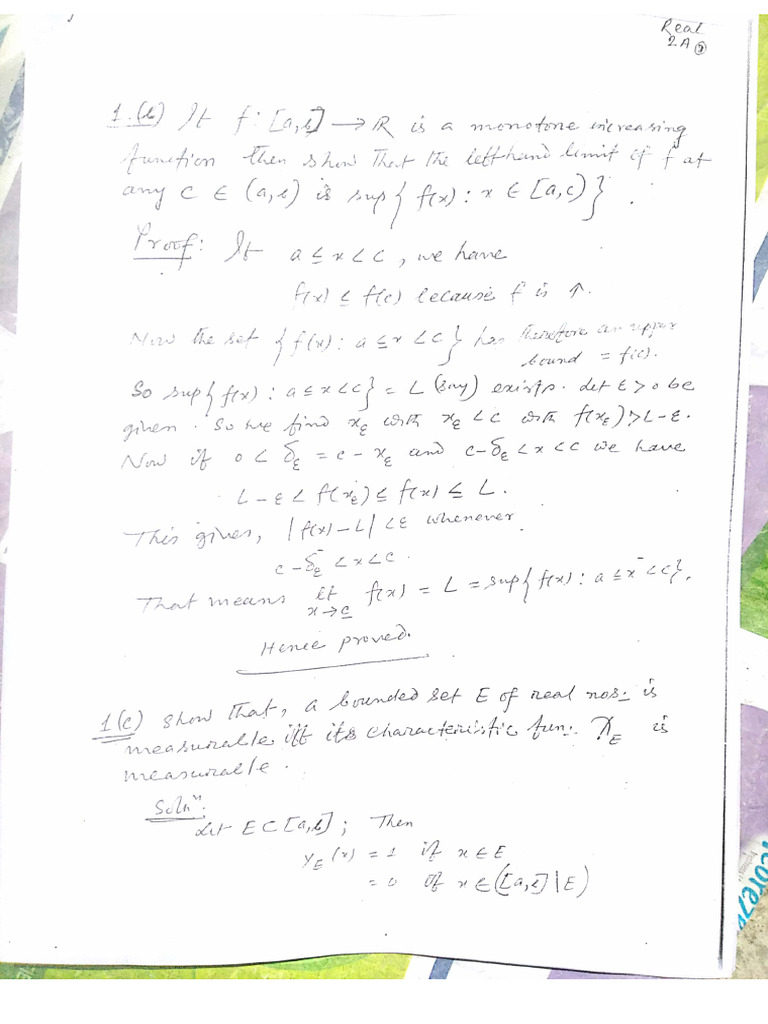 Real
2A ⑨
1.(b) If f: [a,b] → R is a monotone increasing
function then show that the left hand limit of f at
any c ∈ (a,b) is sup{f(x) : x ∈ [a,c)}.
Proof: If a ≤ x < c, we have
f(x) ≤ f(c) because f is ↑.
Now the set {f(x) : a ≤ x < c} has therefore an upper
bound = f(c).
So sup{f(x) : a ≤ x < c} = L (say) exists. Let ε > 0 be
given. So we find x_ε with x_ε < c with f(x_ε) > L-ε.
Now if 0 < δ_ε = c - x_ε and c-δ_ε < x < c we have
L-ε < f(x_ε) ≤ f(x) ≤ L.
This gives, |f(x)-L| < ε whenever
c-δ_ε < x < c.
That means lt f(x) = L = sup{f(x) : a ≤ x < c}.
x→c-
Hence proved.
1(c) Show that, a bounded set E of real nos. is
measurable iff its characteristic fun. χ_E is
measurable.
Solnⁿ:
Let E ⊂ [a,b]; Then
χ_E(x) = 1 if x ∈ E
= 0 if x ∈ ([a,b] \ E)